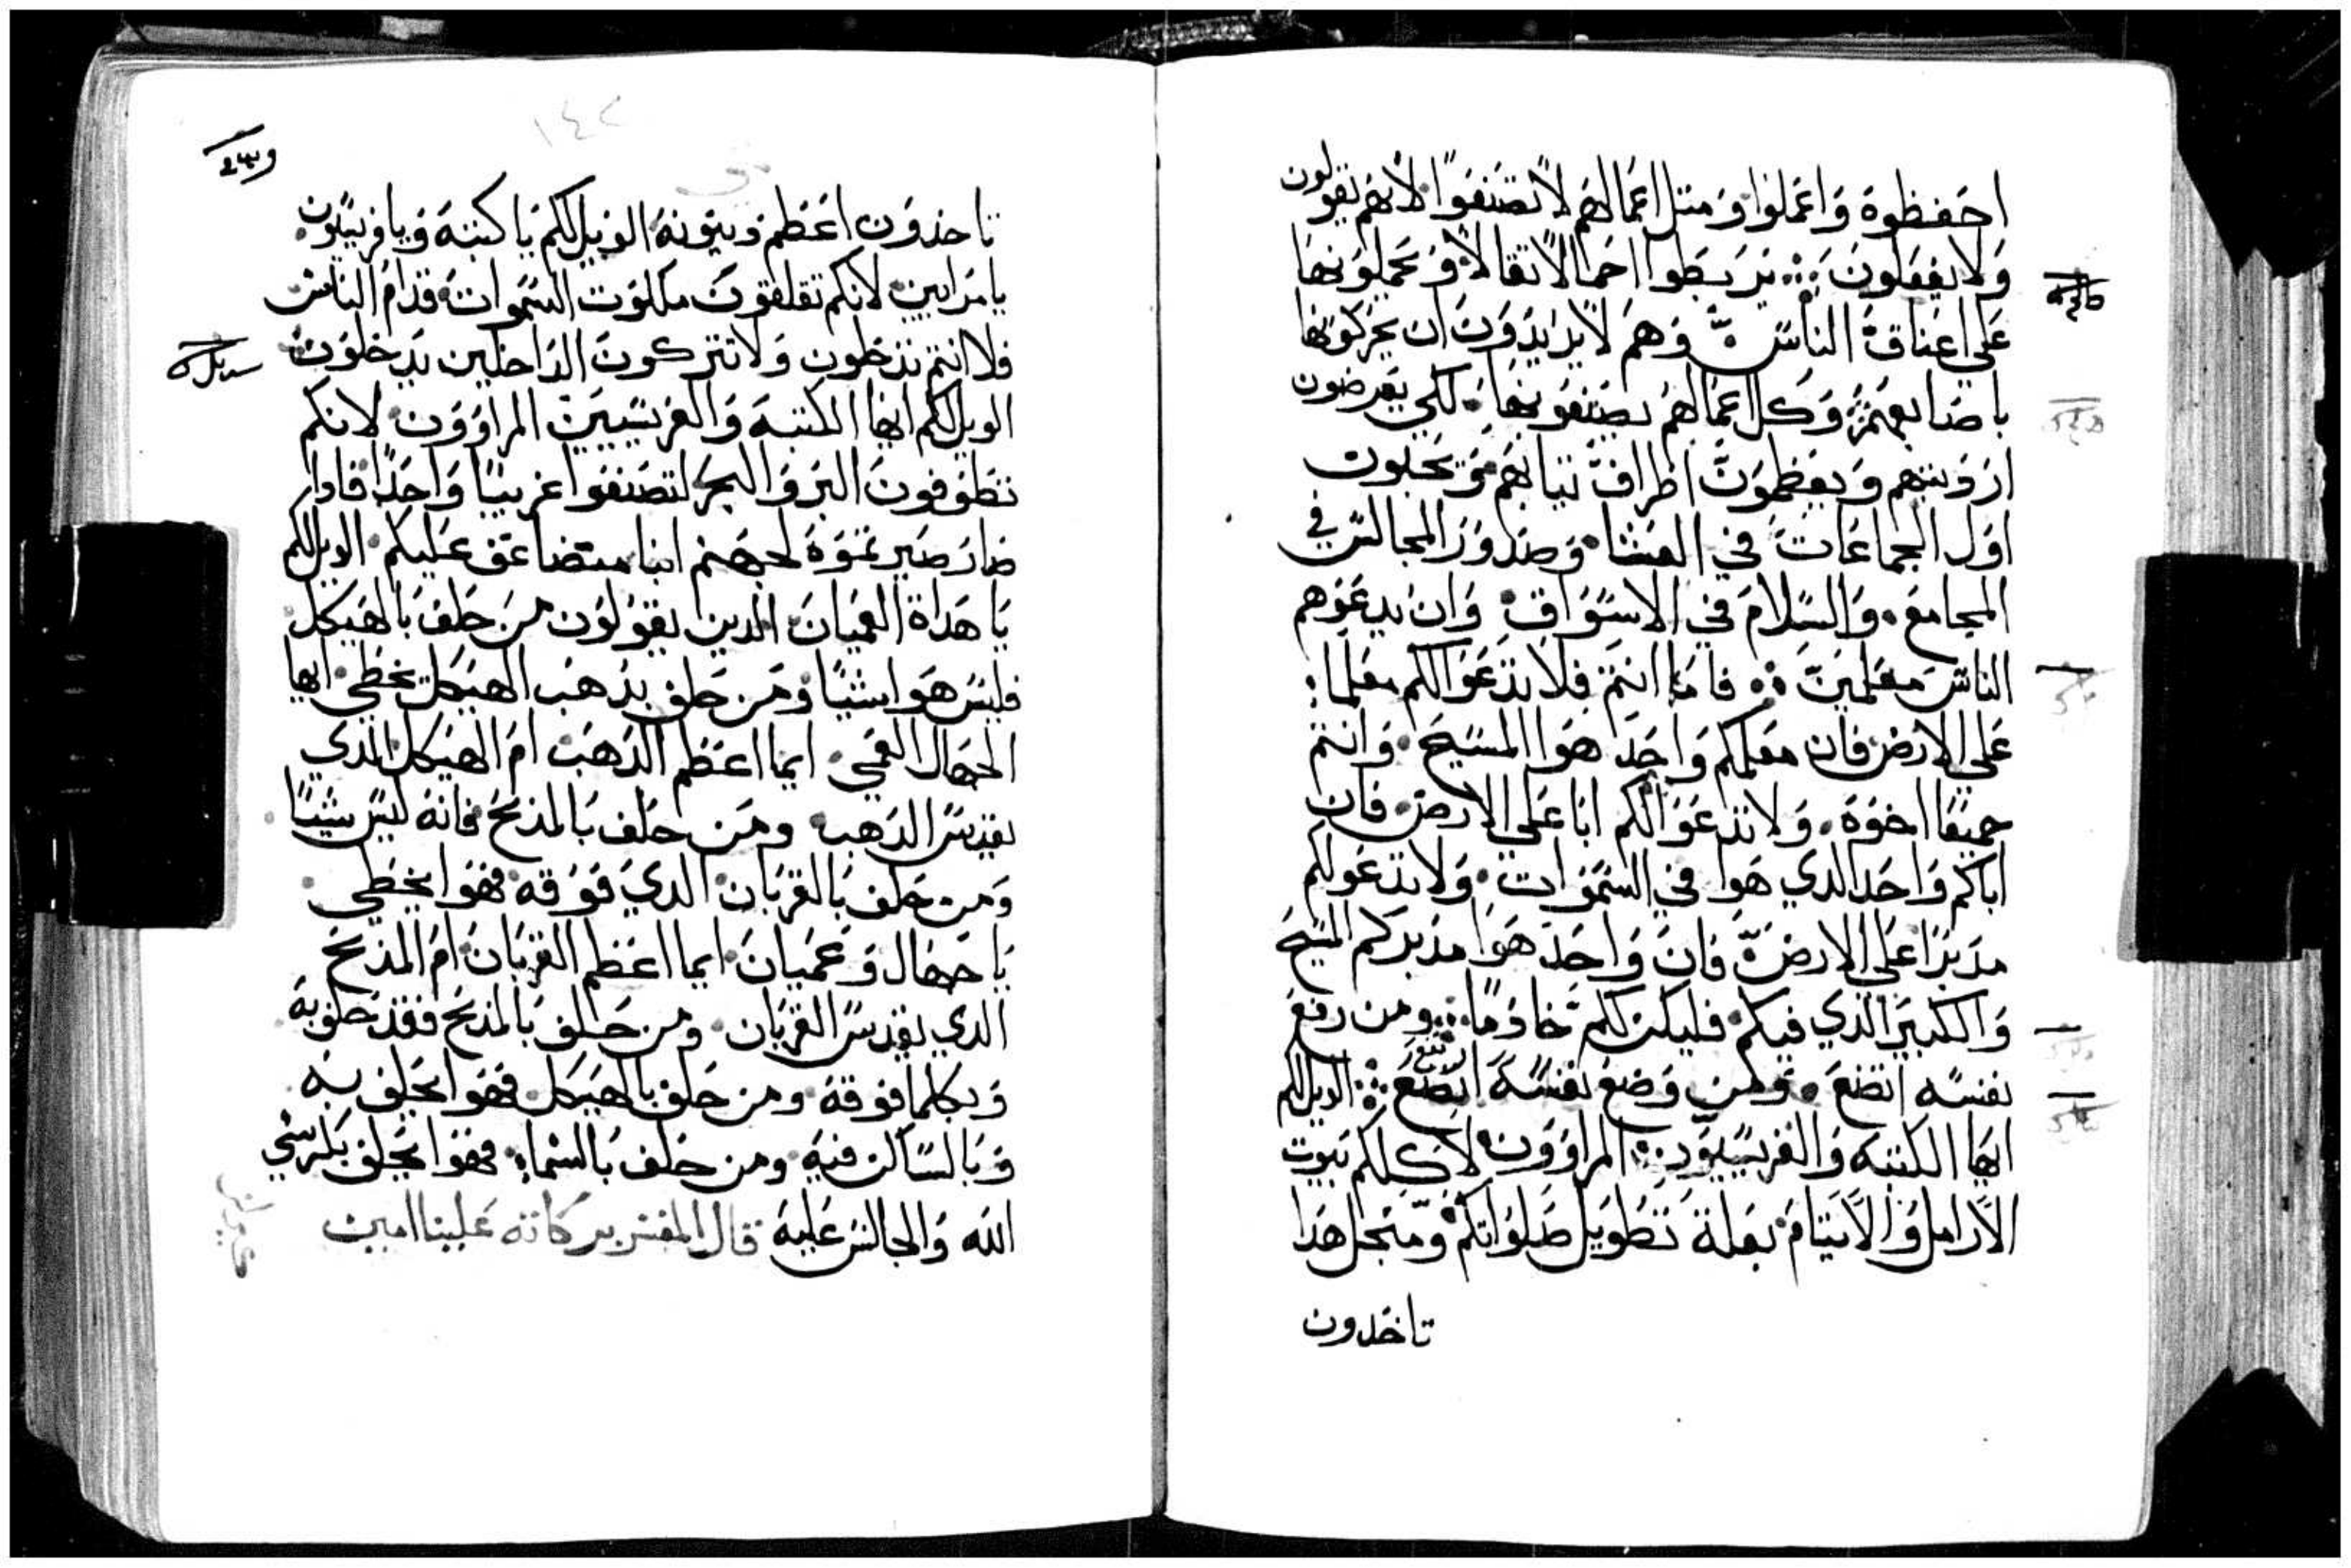 احفظوه واعملوا ومتل اعمالهم لا تصنعوا لانهم يقولون
ولا يفعلون يربطوا احمالا تقالا ويحملونها
علي اعناق الناس وهم لا يريدون ان يحركوها
باصابعهم وكل اعمالهم يصنعونها لكي يعرضون
ارديتهم ويعظمون اطراف تيابهم ويحبون
اول الجماعات في العشا وصدور المجالس في
المجامع والسلام في الاسواق وان يدعوهم
الناس معلمين فاما انتم فلا تدعوا لكم معلما
علي الارض فان معلمكم واحد هوا المسيح وانتم
جميعا اخوه ولا تدعوا لكم ابا علي الارض فان
اباكم واحد الدي هوا في السموات ولا تدعوا لكم
مدبرا علي الارض فان واحد هوا مدبركم المسيح
والكبير الذي فيكم فليكن لكم خادما ومن رفع
نفسه اتضع ومن وضع نفسه ارتفع الويل لكم
ايها الكتبه والفريسيون المراوون لاكلكم بيوت
الارامل والايتام بعلة تطويل صلواتكم ومتجل هدا
تاخدون
١٤٢
تاخدون اعظم دينونه الويل لكم يا كتبه ويا فريسيون
يا مرايين لانكم تغلقون ملكوت السموات قدام الناس
فلا انتم تدخلون ولا تتركون الداخلين يدخلون
الويل لكم ايها الكتبه والفريسيين المراوون لانكم
تطوفون البر والبحر لتصنعوا غريبا واحدا فادا
صار صيرتموه لجهنم ابنا متضاعف عليكم الويل لكم
يا هداة العميان الدين يقولون من حلف بالهيكل
فليس هوا بشيا ومن حلف بدهب الهيكل يخطي ايها
الجهال العمي ايما اعظم الدهب ام الهيكل الدي
يقدس الدهب ومن حلف بالمدبح فانه ليس شيا
ومن حلف بالقربان الدي فوقه فهوا يخطي
يا جهال وعميان ايما اعظم القربان ام المدبح
الدي يقدس القربان ومن حلف بالمدبح فقد حلف به
وبكلما فوقه ومن حلف بالهيكل فهوا يحلف به
وبالساكن فيه ومن حلف بالسماء فهوا يحلف بكرسي
الله والجالس عليه قال المفسر بركاته علينا امين